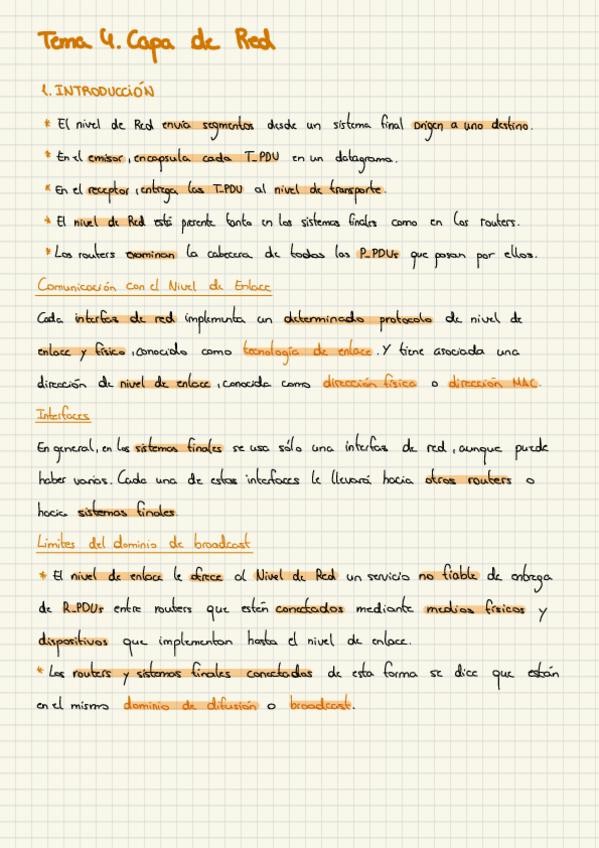 Tema 4. Capa de Red
1. INTRODUCCIÓN
* El nivel de Red envía segmentos desde un sistema final origen a uno destino.
* En el emisor, encapsula cada T_PDU en un datagrama.
* En el receptor, entrega las T_PDU al nivel de transporte.
* El nivel de Red está presente tanto en los sistemas finales como en los routers.
* Los routers examinan la cabecera de todas las R_PDUs que pasan por ellos.
Comunicación con el Nivel de Enlace
Cada interfaz de red implementa un determinado protocolo de nivel de
enlace y físico, conocido como tecnología de enlace. Y tiene asociada una
dirección de nivel de enlace, conocida como dirección física o dirección MAC.
Interfaces
En general, en los sistemas finales se usa sólo una interfaz de red, aunque puede
haber varios. Cada una de estas interfaces le llevará hacia otros routers o
hacia sistemas finales.
Limites del dominio de broadcast
* El nivel de enlace le ofrece al Nivel de Red un servicio no fiable de entrega
de R_PDUs entre routers que estén conectados mediante medios físicos y
dispositivos que implementan hasta el nivel de enlace.
* Los routers y sistemas finales conectados de esta forma se dice que están
en el mismo dominio de difusión o broadcast.